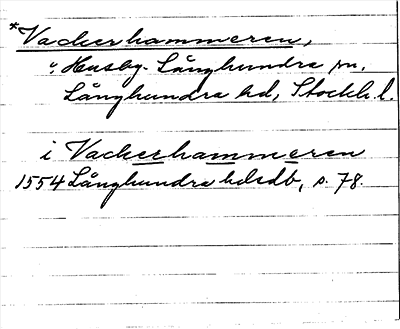 *Vackerhammeren,
i Husby-Långhundra sn,
Långhundra hd, Stockh. l.
i Vackerhammeren
1554 Långhundra hdsdb, s. 78.